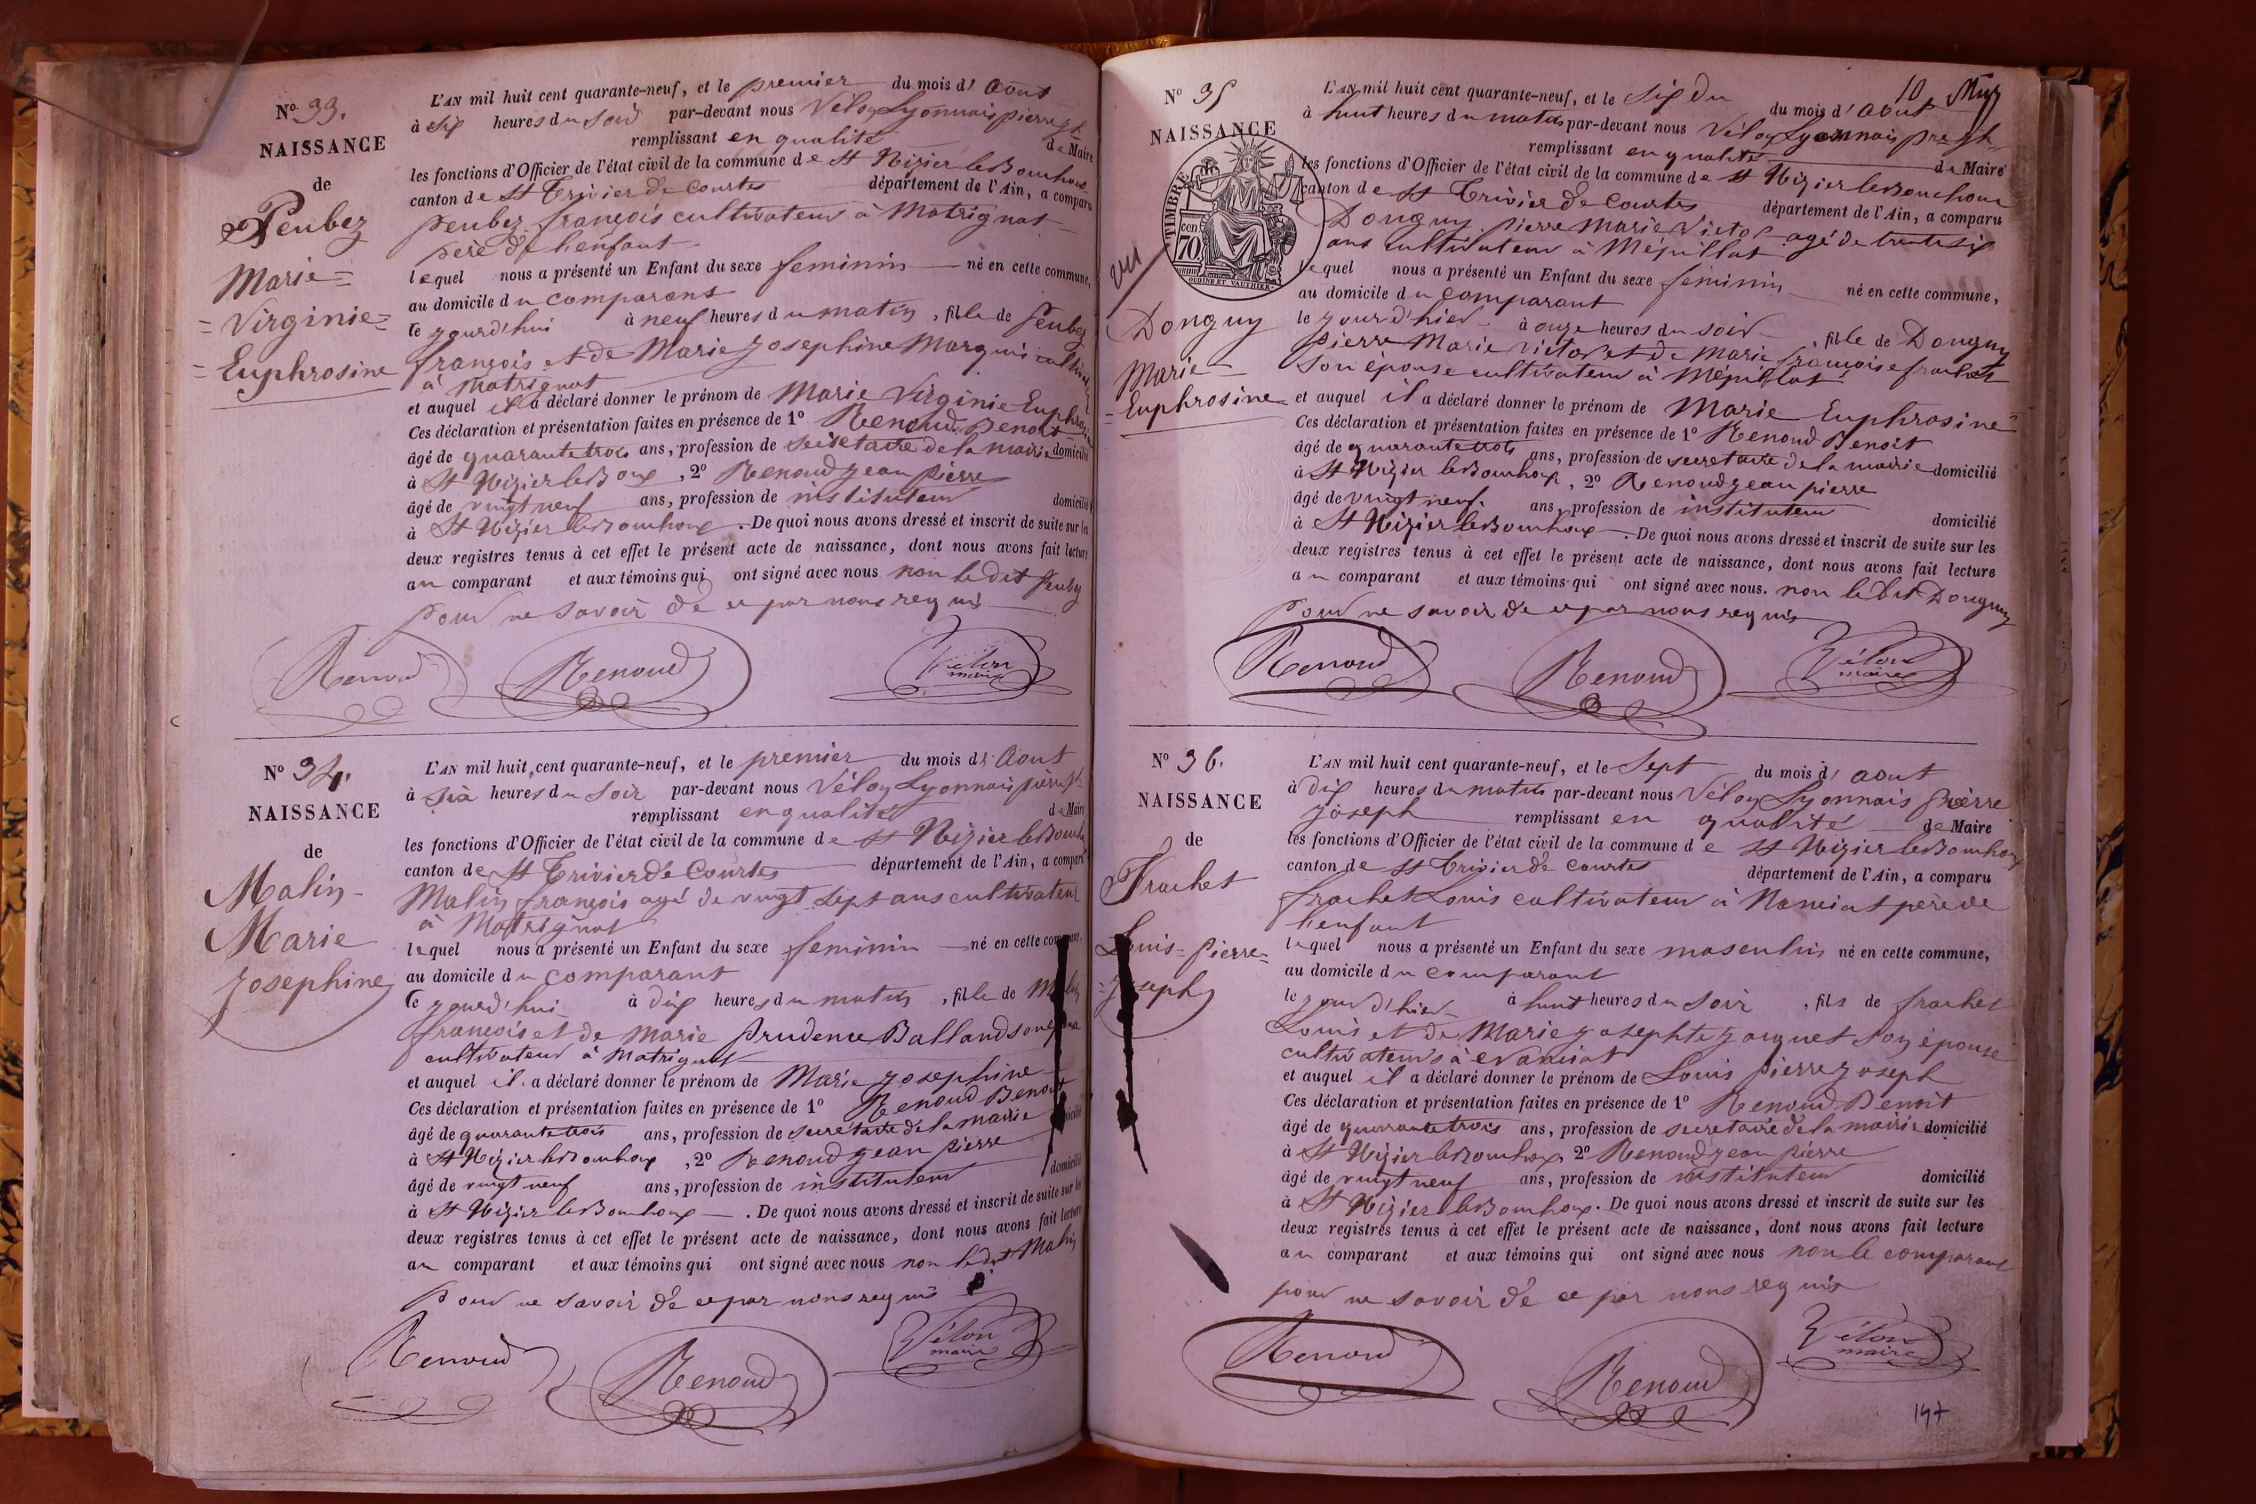 N° 33.
NAISSANCE
de
Peubez
Marie=
=Virginie=
=Euphrosine
L'AN mil huit cent quarante-neuf, et le premier du mois d'Aout
à six heures du soir par-devant nous Véloz Lyonnais pierre jh
remplissant en qualité de Maire
les fonctions d'Officier de l'état civil de la commune de St Nizier le Bouhoux
canton de St Trivier de Courtes département de l'Ain, a comparu
Peubez françois cultivateur à Matrignat
père de l'enfant
lequel nous a présenté un Enfant du sexe feminin né en cette commune,
au domicile du comparant
le jourd'hui à neuf heures du matin, fille de Peubez
françois et de Marie Josephine Marguis cultiv
à Matrignat
et auquel il a déclaré donner le prénom de Marie Virginie Euphrosine
Ces déclaration et présentation faites en présence de 1° Renoud Benoit
âgé de quarante trois ans, profession de secretaire de la mairie domicilié
à St Nizier le Boux, 2° Renoud jean pierre
âgé de vingt neuf ans, profession de instituteur domicilié
à St Nizier le Bouhoux. De quoi nous avons dressé et inscrit de suite sur les
deux registres tenus à cet effet le présent acte de naissance, dont nous avons fait lecture
au comparant et aux témoins qui ont signé avec nous non le dit Peubez
pour ne savoir de ce par nous requis
Renoud Renoud Véloz
maire
N° 34.
NAISSANCE
de
Malin
Marie
Josephine
L'AN mil huit cent quarante-neuf, et le premier du mois d'Aout
à six heures du soir par-devant nous Véloz Lyonnais pierre jh
remplissant en qualité de Maire
les fonctions d'Officier de l'état civil de la commune de St Nizier le Bouh
canton de St Trivier de Courtes département de l'Ain, a comparu
Malin françois agé de vingt sept ans cultivateur
à Matrignat
lequel nous a présenté un Enfant du sexe feminin né en cette commune,
au domicile du comparant
le jourd'hui à dix heures du matin, fille de Malin
françois et de Marie Prudence Balland son épouse
cultivateur à Matrignat
et auquel il a déclaré donner le prénom de Marie Josephine
Ces déclaration et présentation faites en présence de 1° Renoud Benoit
âgé de quarante trois ans, profession de secretaire de la mairie domicilié
à St Nizier le Bouhoux, 2° Renoud jean pierre
âgé de vingt neuf ans, profession de instituteur domicilié
à St Nizier le Bouhoux. De quoi nous avons dressé et inscrit de suite sur les
deux registres tenus à cet effet le présent acte de naissance, dont nous avons fait lecture
au comparant et aux témoins qui ont signé avec nous non le dit Malin
pour ne savoir de ce par nous requis
Renoud Renoud Véloz
maire
10
N° 35
NAISSANCE
TIMBRE de
cen.
70
OUDINE ET VAUTHIER
vu
Donguy
Marie=
=Euphrosine=
L'AN mil huit cent quarante-neuf, et le six du du mois d'Aout
à huit heures du matin par-devant nous Véloz Lyonnais pre jh
remplissant en qualité de Maire
les fonctions d'Officier de l'état civil de la commune de St Nizier le Bouhoux
canton de St Trivier de Courtes département de l'Ain, a comparu
Donguy pierre Marie Victor agé de trente six
ans cultivateur à Mépillat
lequel nous a présenté un Enfant du sexe feminin né en cette commune,
au domicile du comparant
le jour d'hier à onze heures du soir, fille de Donguy
pierre Marie Victor et de Marie françoise frachet
son épouse cultivateur à Mépillat
et auquel il a déclaré donner le prénom de Marie Euphrosine=
Ces déclaration et présentation faites en présence de 1° Renoud Benoit
âgé de quarante trois ans, profession de secretaire de la mairie domicilié
à St Nizier le Bouhoux, 2° Renoud jean pierre
âgé de vingt neuf. ans, profession de instituteur domicilié
à St Nizier le Bouhoux. De quoi nous avons dressé et inscrit de suite sur les
deux registres tenus à cet effet le présent acte de naissance, dont nous avons fait lecture
au comparant et aux témoins qui ont signé avec nous. non le dit Donguy
pour ne savoir de ce par nous requis
Renoud Renoud Véloz
maire
N° 36.
NAISSANCE
de
Frachet
Louis=Pierre=
=Joseph
L'AN mil huit cent quarante-neuf, et le Sept du mois d'aout
à dix heures du matin par-devant nous Véloz Lyonnais Pierre
joseph remplissant en qualité de Maire
les fonctions d'Officier de l'état civil de la commune de St Nizier le Bouhoux
canton de St Trivier de Courtes département de l'Ain, a comparu
frachet Louis cultivateur à Nanciat père de
l'enfant
lequel nous a présenté un Enfant du sexe masculin né en cette commune,
au domicile du comparant
le jour d'hier à huit heures du soir, fils de frachet
Louis et de Marie josephte jouguet son épouse
cultivateurs à Nanciat
et auquel il a déclaré donner le prénom de Louis pierre joseph
Ces déclaration et présentation faites en présence de 1° Renoud Benoit
âgé de quarante trois ans, profession de secretaire de la mairie domicilié
à St Nizier le Bouhoux, 2° Renoud jean pierre
âgé de vingt neuf ans, profession de instituteur domicilié
à St Nizier le Bouhoux. De quoi nous avons dressé et inscrit de suite sur les
deux registres tenus à cet effet le présent acte de naissance, dont nous avons fait lecture
au comparant et aux témoins qui ont signé avec nous non le comparant
pour ne savoir de ce par nous requis
Renoud Renoud Véloz
maire
147